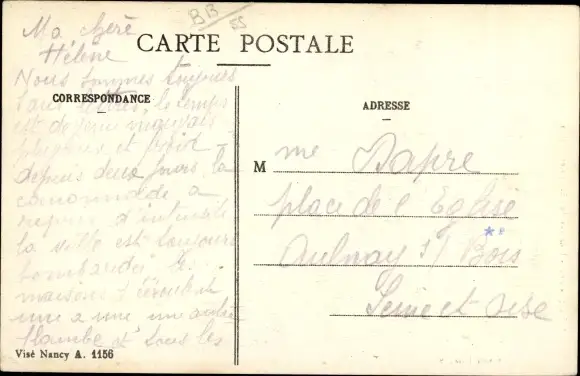 BB
Ma chère
Hélène
CARTE POSTALE
Nous sommes toujours
CORRESPONDANCE
sans lettres, le temps
est devenu mauvais
et froid
depuis deux jours, la
canonnade a
repris d'intensité
la ville est toujours
bombardée les
maisons s'écroulent
une a une une autre
flambe et tous les
Visé Nancy A. 1156
ADRESSE
M me Dapre
place de l Eglise
Aulnay s/ Bois
Seine et oise